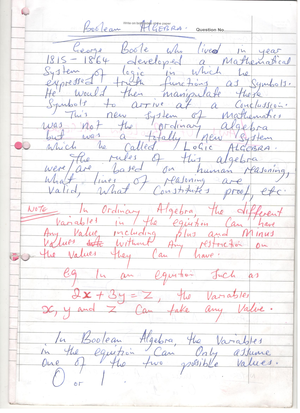 Boolean Algebra.
Question No.
George Boole who lived in year
1815 - 1864 developed a Mathematical
System of logic in which he
expressed truth functions as Symbols.
He would then manipulate these
Symbols to arrive at a Conclusion.
This new System of Mathematics
was not the ordinary algebra
but was a totally new System
which he Called Logic ALGEBRA.
The rules of this algebra
were/are based on human reasoning,
what lines of reasoning are
valid, What Constitutes proof, etc.
NOTE: In Ordinary Algebra, the different
variables in the equation Can have
Any value, including plus and Minus
values without Any restriction on
the values they Can have.
Eg In an equation Such as
2x + 3y = Z, the Variables
x, y and Z Can take any Value.
In Boolean Algebra, the Variables
in the equation Can Only assume
one of the two possible values.
0 or 1